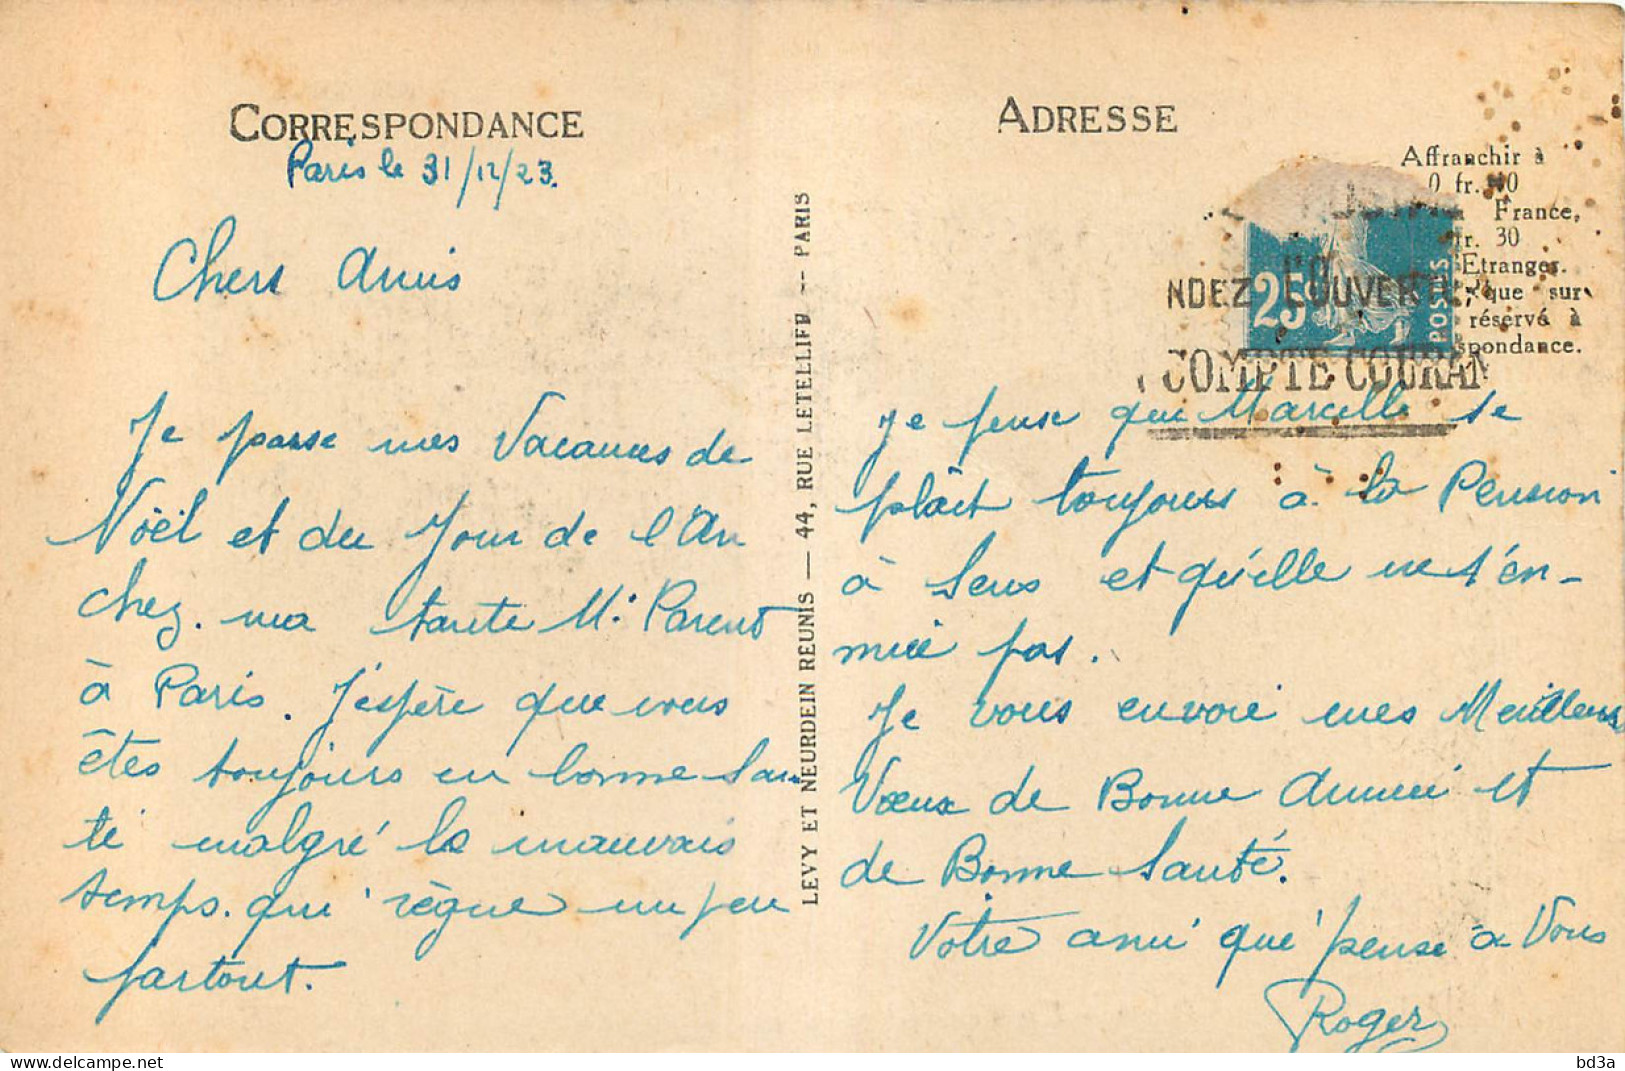 CORRESPONDANCE
Paris le 31/12/23.
Chers Amis
Je passe mes Vacances de
Noël et du Jour de l'An
chez. ma tante M. Parent
à Paris. J'espère que vous
êtes toujours en bonne San
té malgré le mauvais
temps. qui règne un peu
partout.
LEVY ET NEURDEIN REUNIS — 44, RUE LETELLIER — PARIS
ADRESSE
Affranchir à
0 fr. 10
France,
fr. 30
Etranger.
que sur
réservé à
spondance.
25
POSTES
NDEZ L'OUVERTURE
COMPTE COURAN
Je pense que Marcelle se
plait toujours à la Pension
à Sens et qu'elle ne s'en-
nuie pas.
Je vous envoie mes Meilleurs
Vœux de Bonne Année et
de Bonne Santé.
Votre ami qui pense à Vous
Roger
bd3a